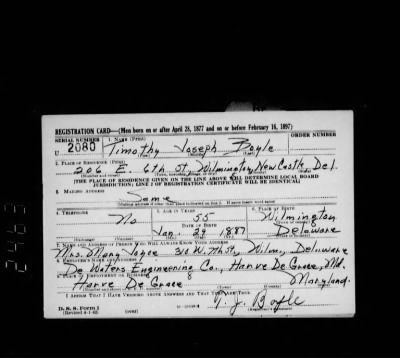 REGISTRATION CARD—(Men born on or after April 28, 1877 and on or before February 16, 1897)
SERIAL NUMBER 1. NAME (Print) ORDER NUMBER
U 2080 Timothy Joseph Boyle
2. PLACE OF RESIDENCE (Print)
206 E. 6th St. Wilmington, New Castle, Del.
[THE PLACE OF RESIDENCE GIVEN ON THE LINE ABOVE WILL DETERMINE LOCAL BOARD
JURISDICTION; LINE 2 OF REGISTRATION CERTIFICATE WILL BE IDENTICAL]
3. MAILING ADDRESS
Same
4. TELEPHONE 5. AGE IN YEARS 6. PLACE OF BIRTH
No 55 Wilmington
DATE OF BIRTH
Jan. 29 1887 Delaware
7. NAME AND ADDRESS OF PERSON WHO WILL ALWAYS KNOW YOUR ADDRESS
Mrs. Mary Joyce 310 W. St. Wilm, Delaware
8. EMPLOYER'S NAME AND ADDRESS
De Waters Engineering Co., Havre De Grace, Md.
9. PLACE OF EMPLOYMENT OR BUSINESS
Havre De Grace Maryland.
I AFFIRM THAT I HAVE VERIFIED ABOVE ANSWERS AND THAT THEY ARE TRUE.
T. J. Boyle
D. S. S. Form 1
(Revised 4-1-42) (over)
2463